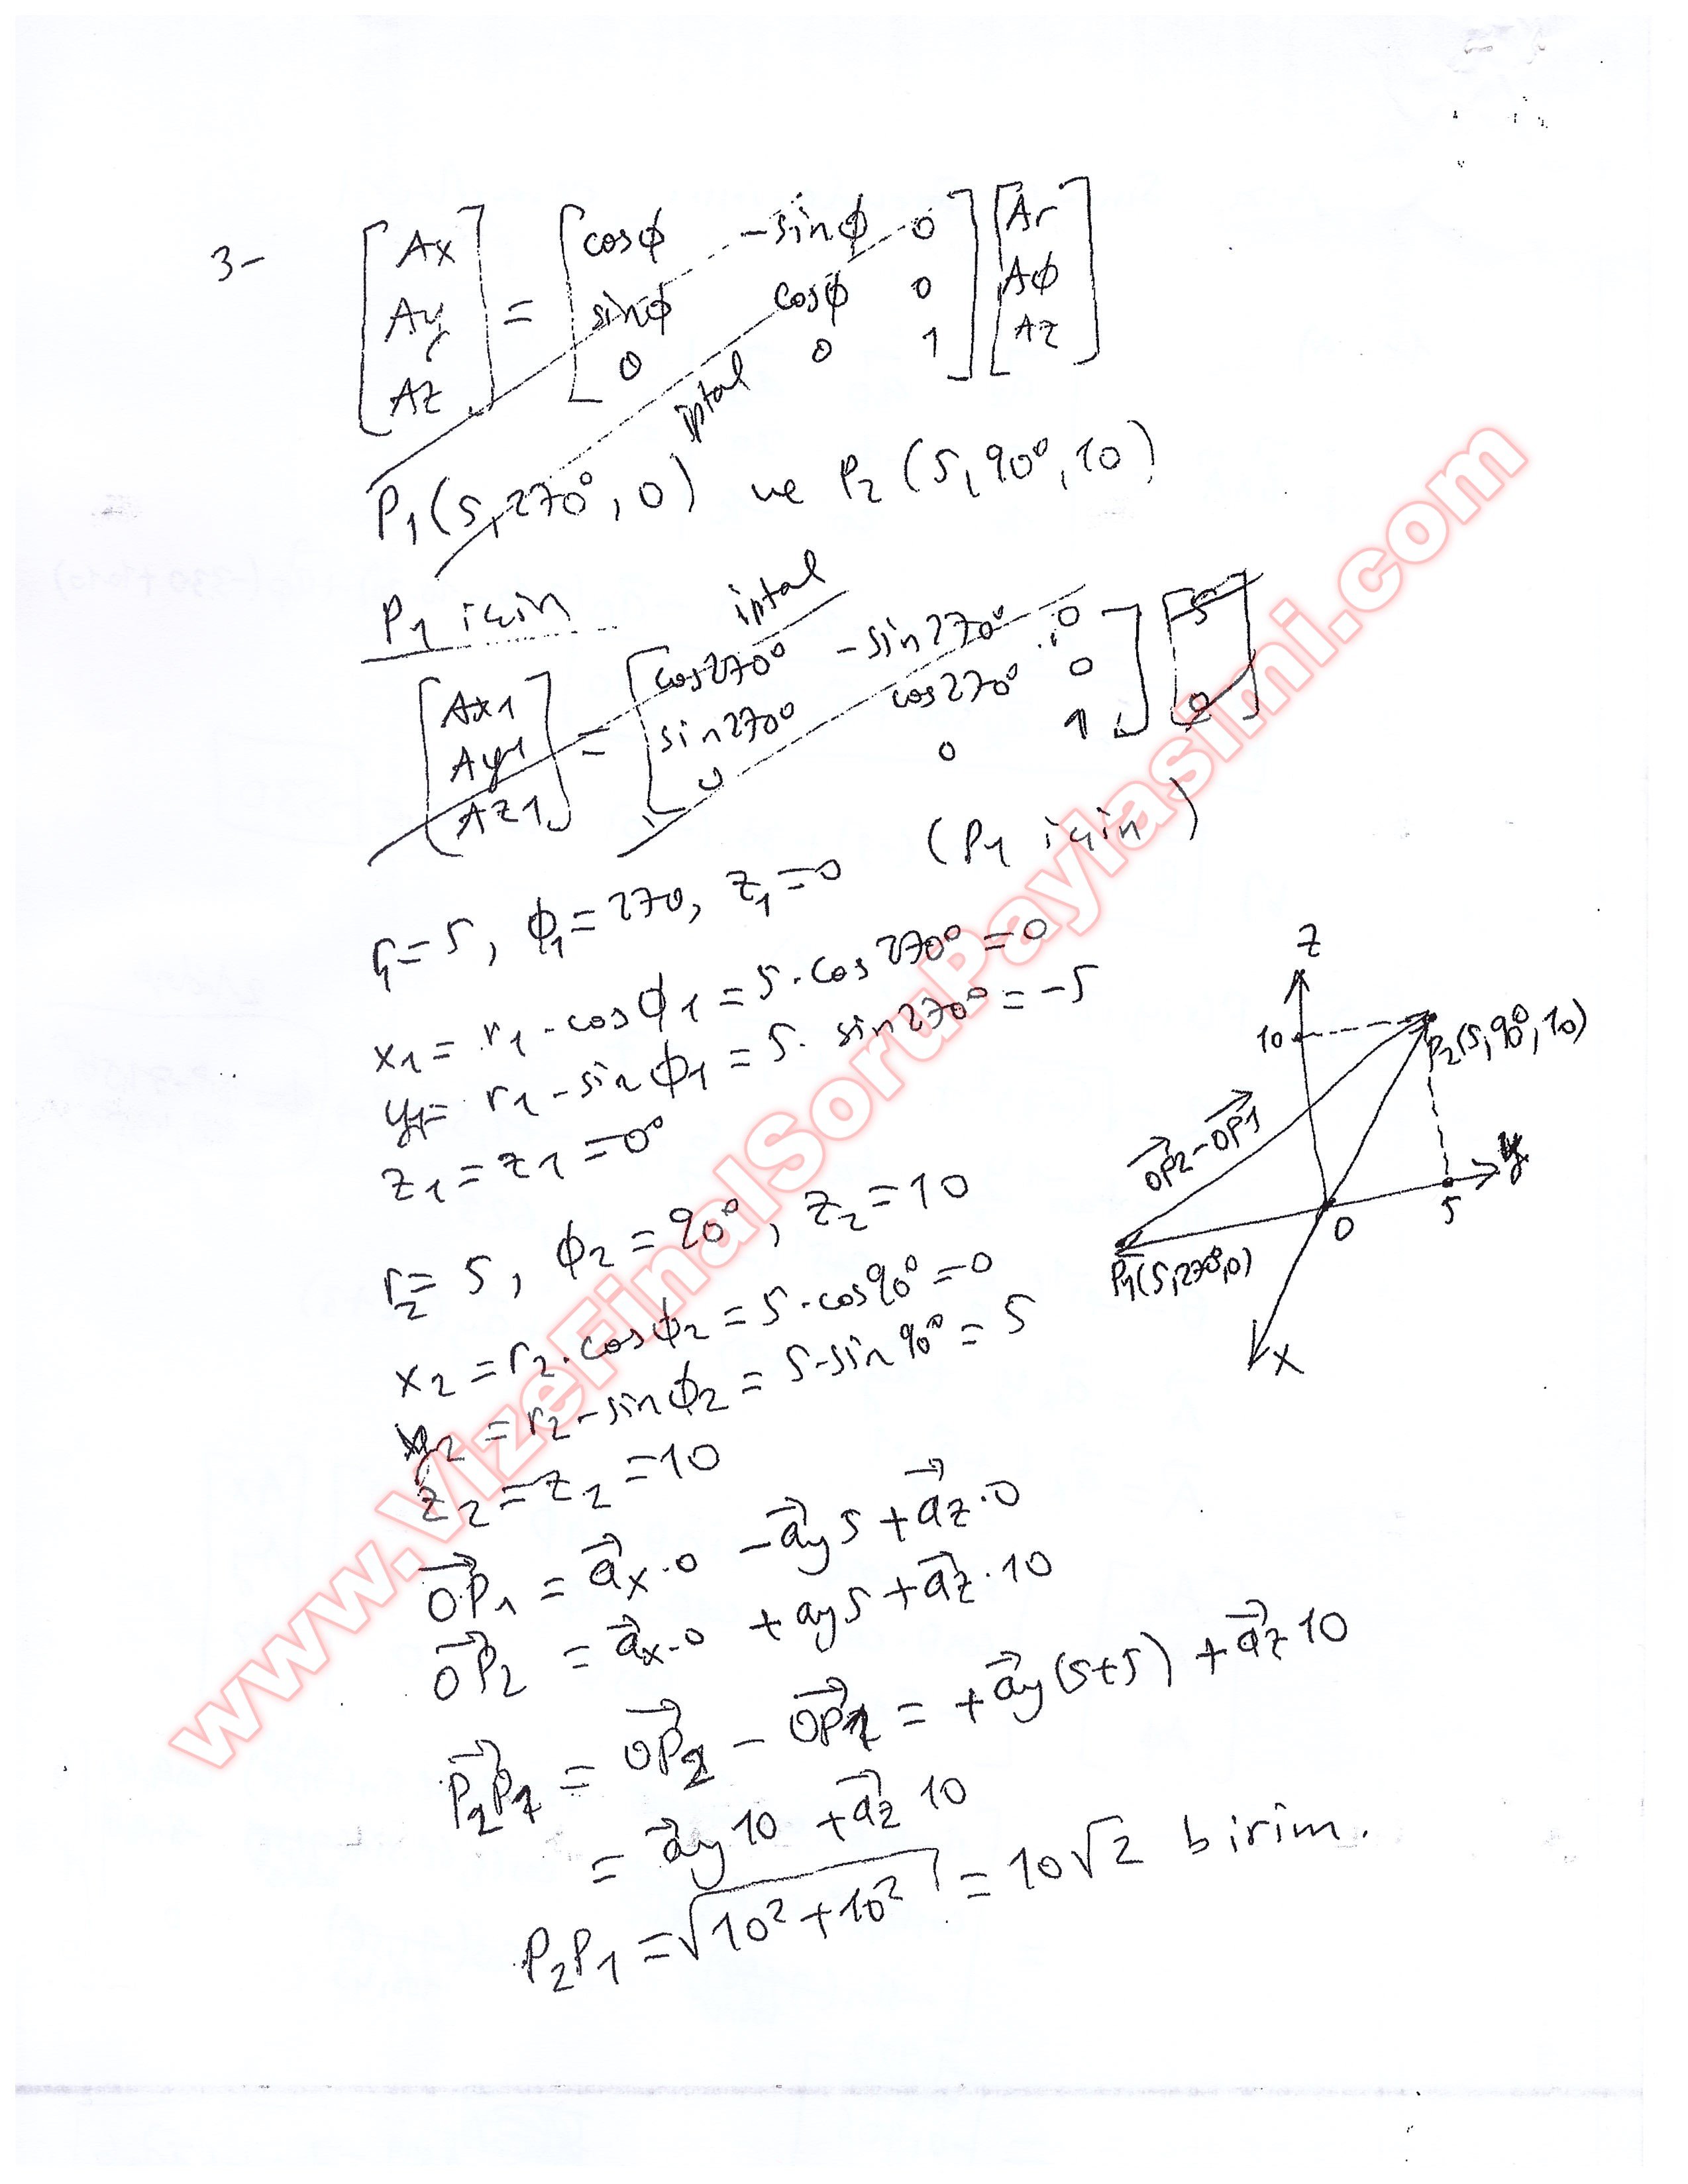 3-
[Ax Ay Az] = [cosϕ -sinϕ 0
sinϕ cosϕ 0
0 0 1] [Ar Aϕ Az]
iptal
P₁(5,270°,0) ve P₂(5,90°,10)
P₁ için
iptal
[Ax1 Ay1 Az1] = [cos270° -sin270° 0
sin270° cos270° 0
0 0 1] [5 0]
r₁=5, ϕ₁=270, z₁=0 (P₁ için)
x₁ = r₁.cosϕ₁ = 5.cos270° = 0
y₁ = r₁.sinϕ₁ = 5.sin270° = -5
z₁ = z₁ = 0°
r₂ = 5, ϕ₂ = 90°, z₂ = 10
x₂ = r₂.cosϕ₂ = 5.cos90° = 0
y₂ = r₂.sinϕ₂ = 5.sin90° = 5
z₂ = z₂ = 10
OP₁ = ax.0 - ay5 + az.0
OP₂ = ax.0 + ay5 + az.10
P₂P₁ = OP₂ - OP₁ = +ay(5+5) + az10
= ay10 + az10
P₂P₁ = √10²+10² = 10√2 birim.
z
10
P₂(5,90°,10)
OP2-OP1
y
5
0
P₁(5,270°,0)
x
www.VizeFinalSoruPaylasimi.com